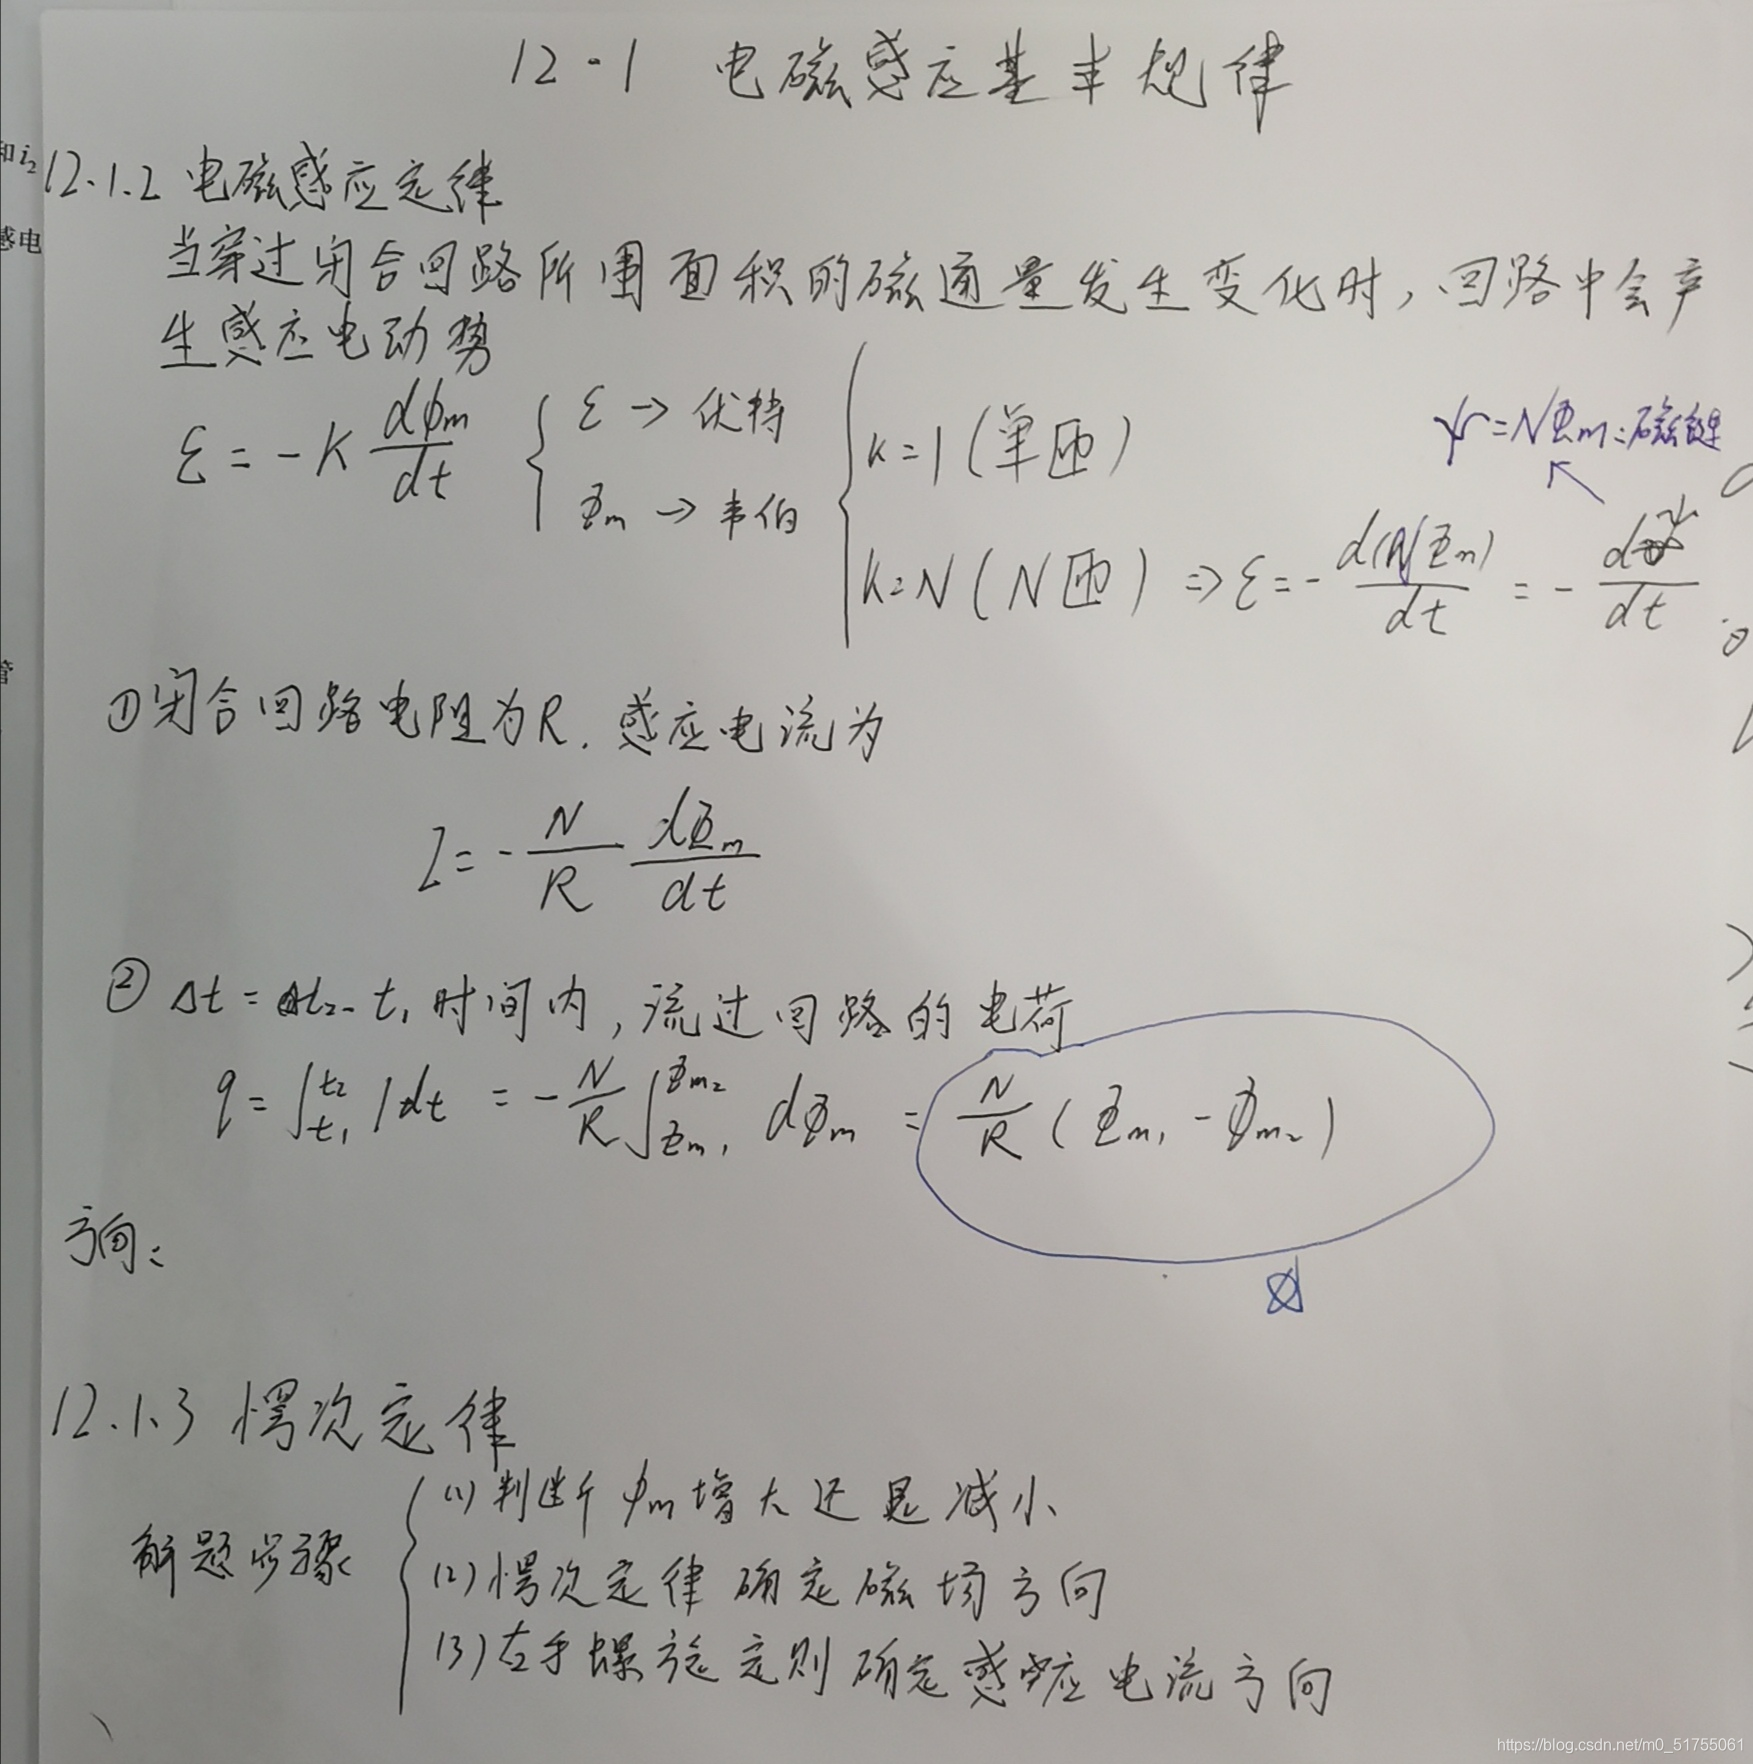 12-1 电磁感应基本规律
和i₂
12.1.2 电磁感应定律
感电
当穿过闭合回路所围面积的磁通量发生变化时,回路中会产
生感应电动势
ε = -K dϕm/dt { ε → 伏特 Φm → 韦伯 { k=1(单匝) k=N(N匝) ⇒ ε = - d(NΦm)/dt = - dψ/dt
ψ=NΦm:磁链
管
①闭合回路电阻为R.感应电流为
I = - N/R dΦm/dt
② Δt = t₂-t₁时间内,流过回路的电荷
q = ∫_{t₁}^{t₂} Idt = - N/R ∫_{Φm₁}^{Φm₂} dΦm = N/R (Φm₁ - Φm₂)
方向:
12.1.3 愣次定律
解题步骤 { (1)判断ϕm增大还是减小
(2)愣次定律确定磁场方向
(3)右手螺旋定则确定感应电流方向
https://blog.csdn.net/m0_51755061